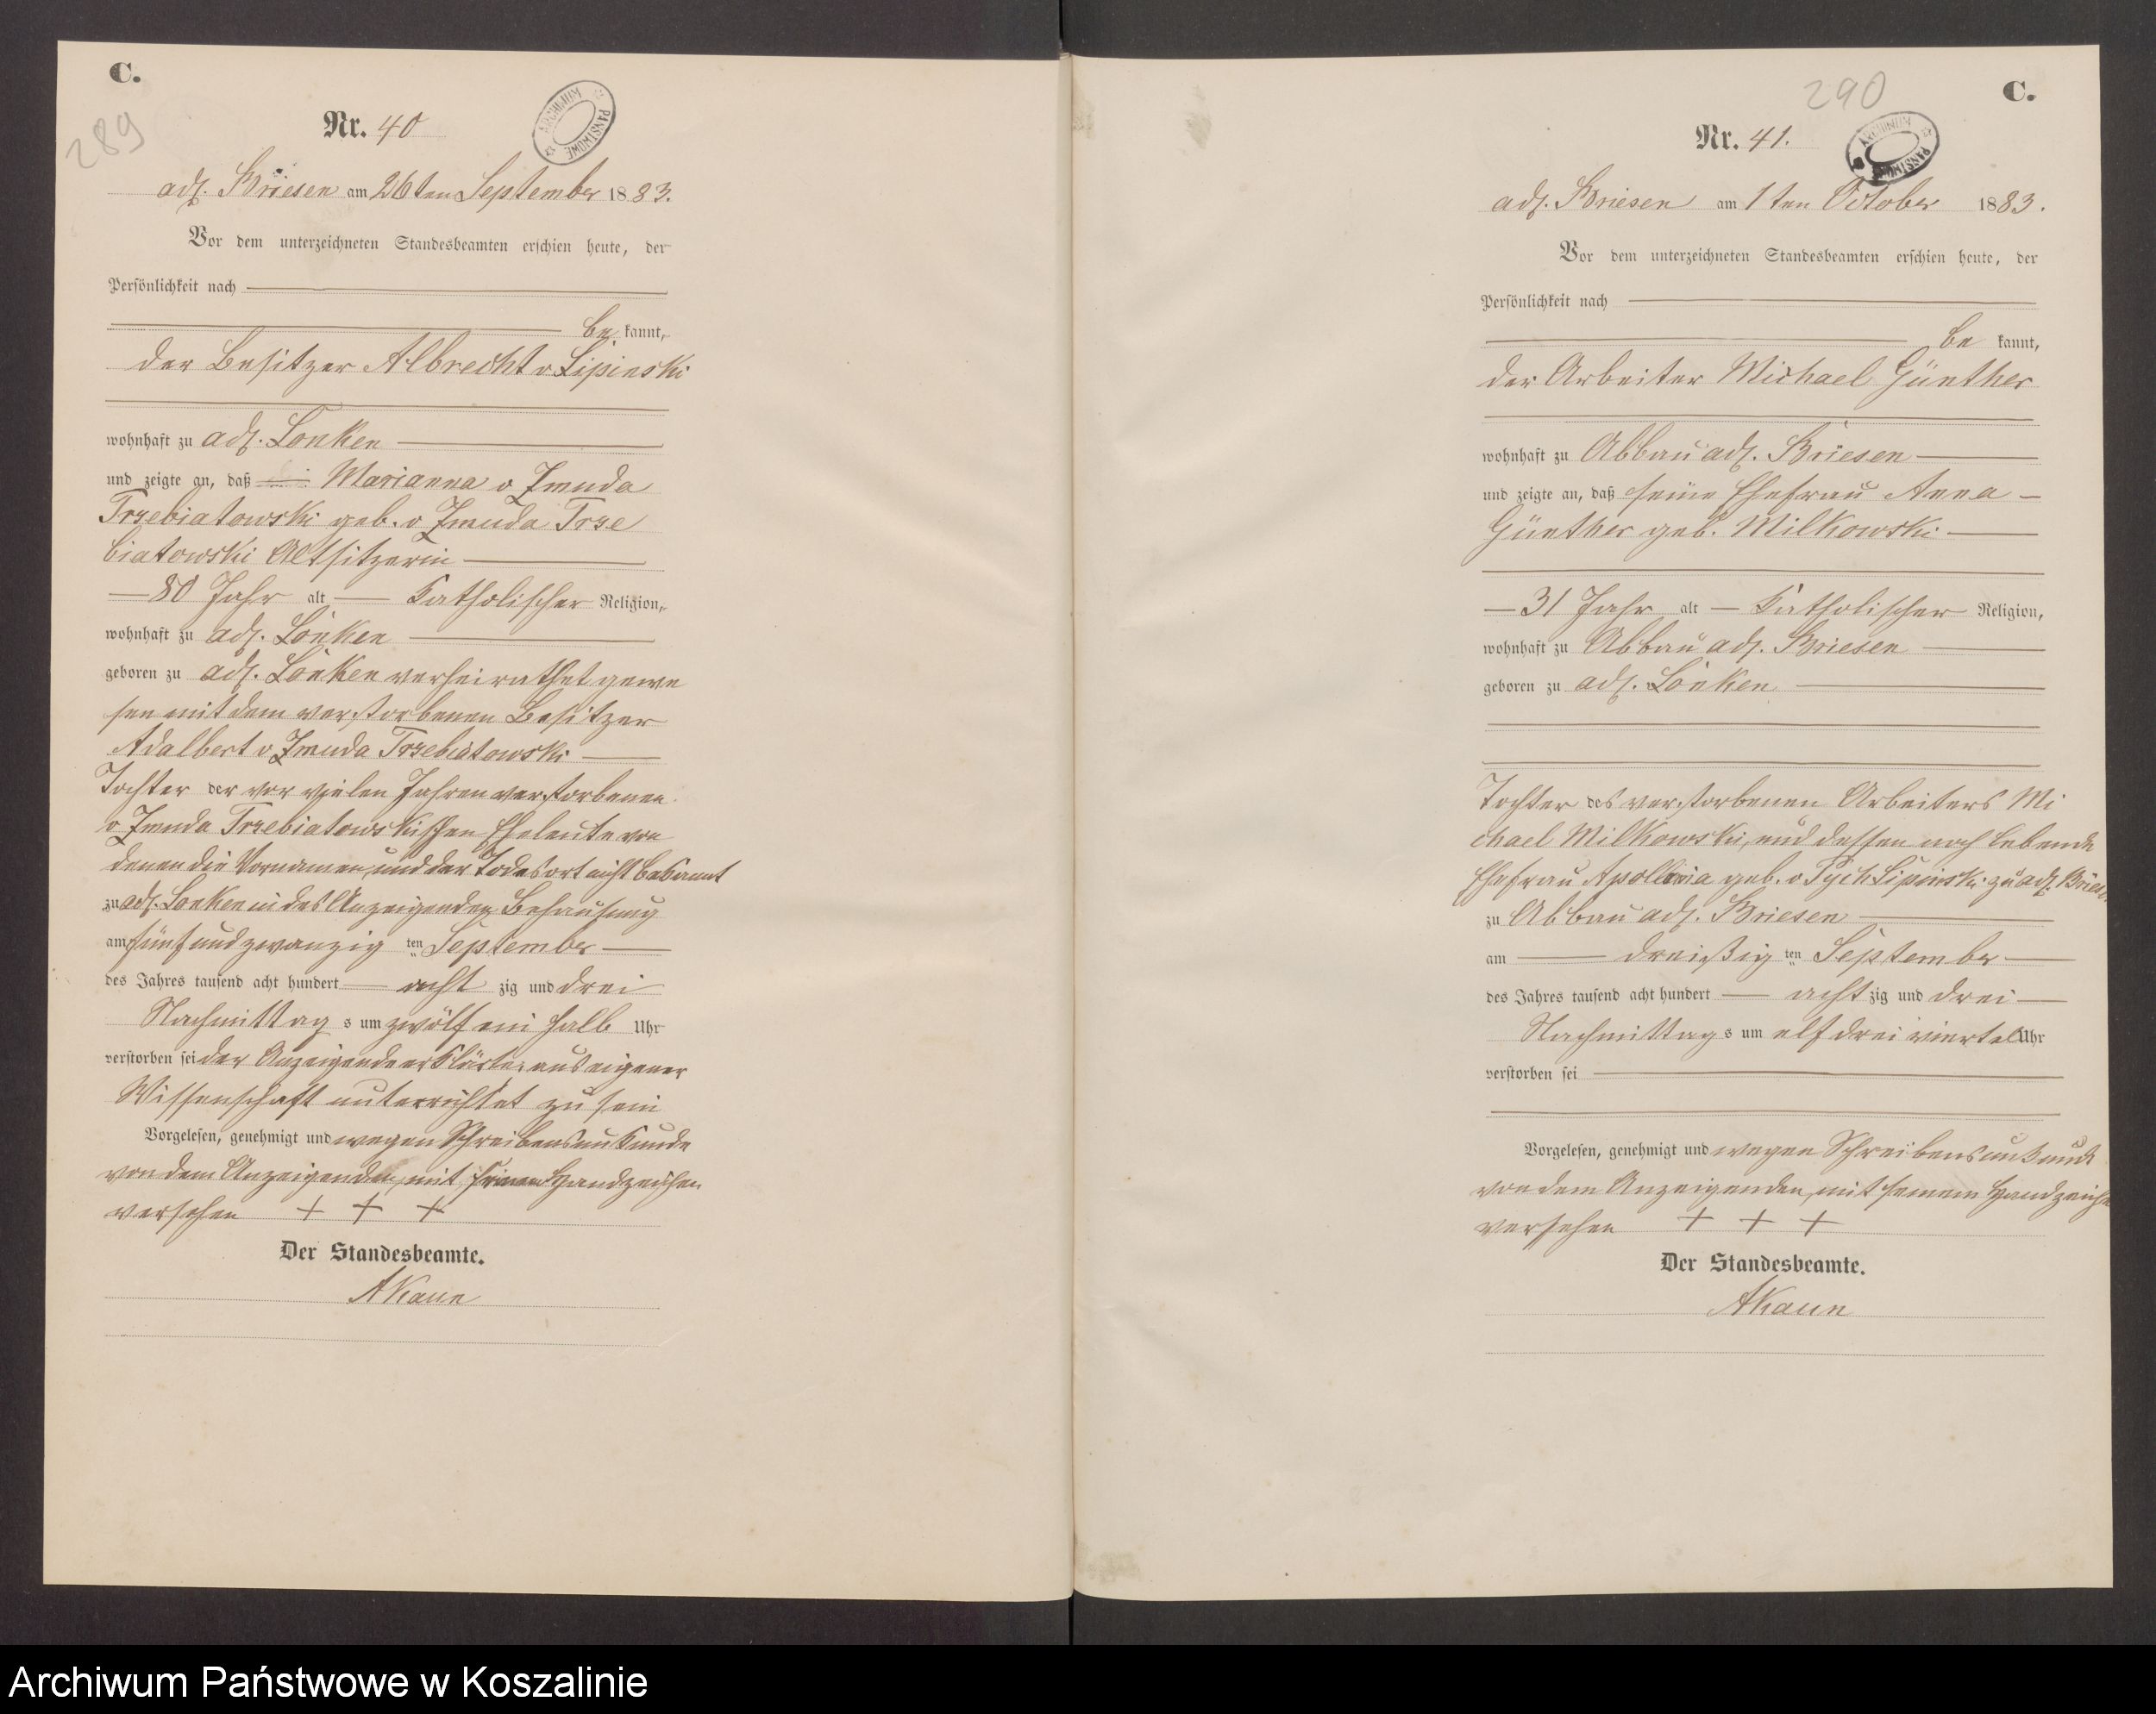 C.
289
Nr. 40
ARCHIWUM PAŃSTWOWE
adl. Briesen am 26ten September 1883.
Vor dem unterzeichneten Standesbeamten erschien heute, der
Persönlichkeit nach
be kannt,
der Besitzer Albrecht v Lipinski
wohnhaft zu adl. Lonken
und zeigte an, daß Marianna v Zmuda
Trzebiatowski geb. v Zmuda Trze
biatowski Altsitzerin
80 Jahr alt Katholischer Religion,
wohnhaft zu adl. Lonken
geboren zu adl. Lonken verheirathet gewe
sen mit dem verstorbenen Besitzer
Adalbert v Zmuda Trzebiatowski
Tochter der vor vielen Jahren verstorbenen
v Zmuda Trzebiatowskischen Eheleute von
denen die Vornamen und der Todesort nicht bekannt
zu adl. Lonken in des Anzeigenden Behausung
am fünf und zwanzig ten September
des Jahres tausend acht hundert acht zig und drei
Nachmittag s um zwölf ein halb Uhr
verstorben sei der Anzeigende erklärte, aus eigener
Wissenschaft unterrichtet zu sein
Vorgelesen, genehmigt und wegen Schreibensunkunde
von dem Anzeigenden, mit seinem Handzeichen
versehen + + +
Der Standesbeamte.
AKaun
290
C.
Nr. 41.
ARCHIWUM PAŃSTWOWE
adl. Briesen am 1ten October 1883.
Vor dem unterzeichneten Standesbeamten erschien heute, der
Persönlichkeit nach
be kannt,
der Arbeiter Michael Günther
wohnhaft zu Abbau adl. Briesen
und zeigte an, daß seine Ehefrau Anna
Günther geb. Milkowski
31 Jahr alt Katholischer Religion,
wohnhaft zu Abbau adl. Briesen
geboren zu adl. Lonken
Tochter des verstorbenen Arbeiters Mi
chael Milkowski, und dessen noch lebende
Ehefrau Apollonia geb. v Pych Lipinski zu adl. Briesen
zu Abbau adl. Briesen
am dreißig ten September
des Jahres tausend acht hundert acht zig und drei
Nachmittag s um elf drei viertel Uhr
verstorben sei
Vorgelesen, genehmigt und wegen Schreibensunkunde
von dem Anzeigenden, mit seinem Handzeichen
versehen + + +
Der Standesbeamte.
AKaun
Archiwum Państwowe w Koszalinie